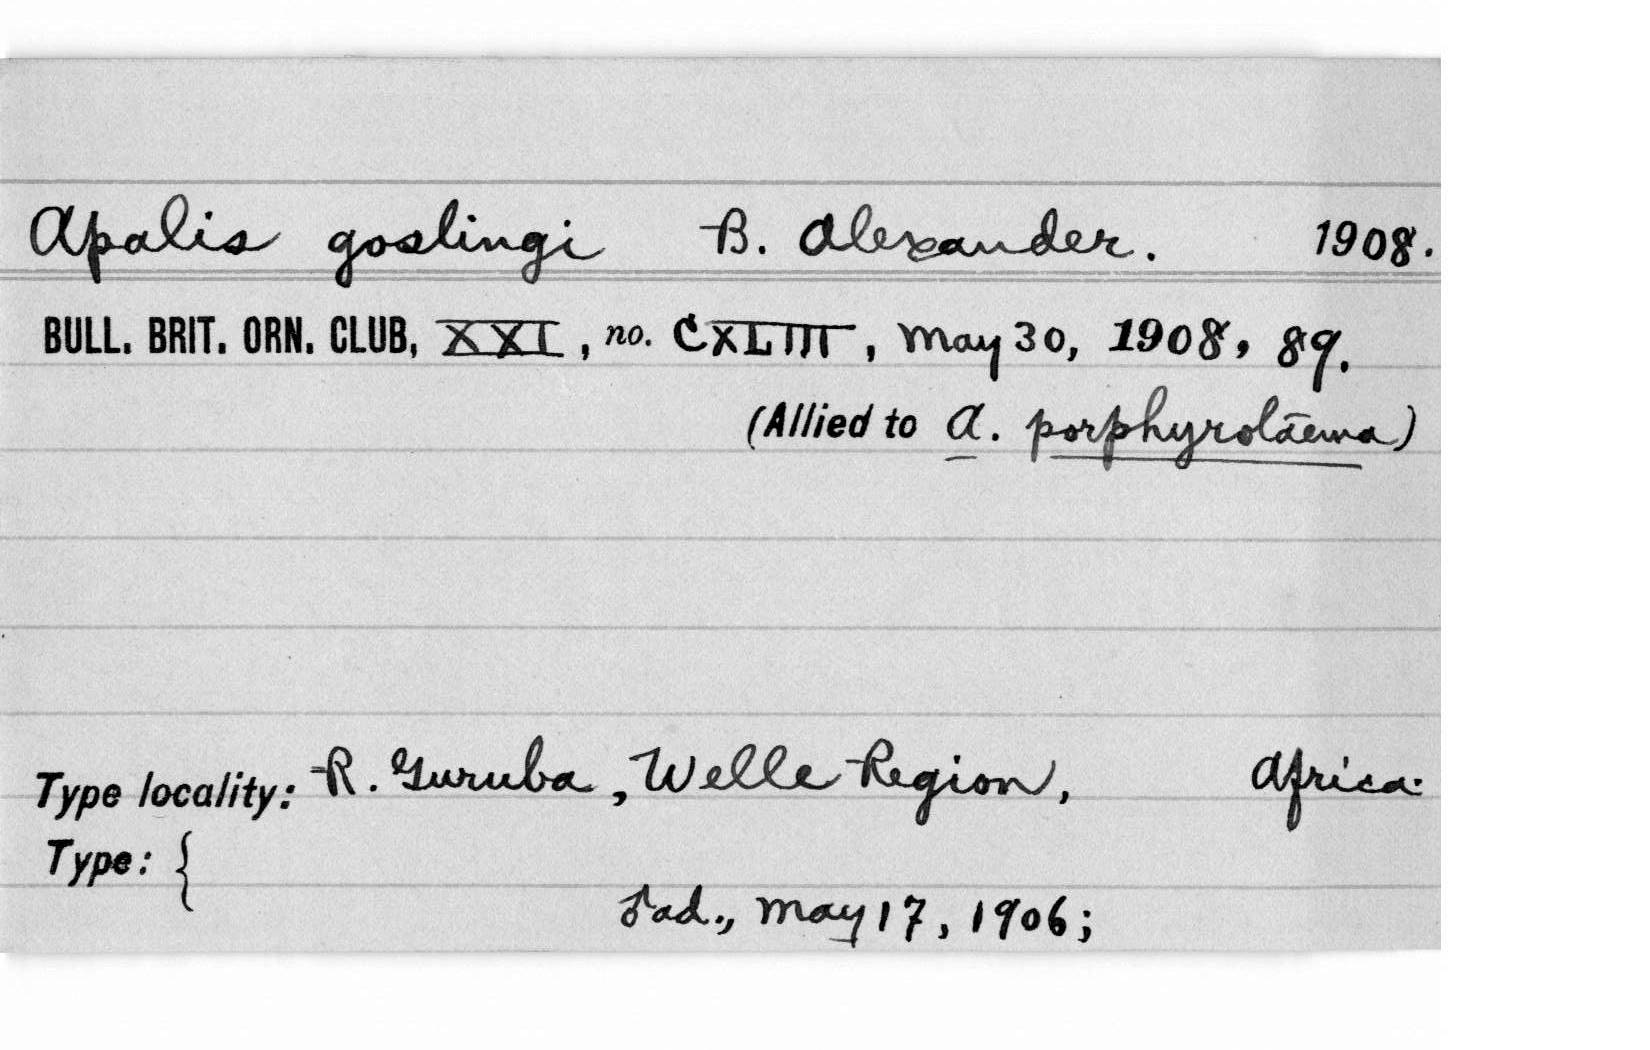 Apalis goslingi B. Alexander. 1908.
BULL. BRIT. ORN. CLUB, XXI, no. CXLIII, May 30, 1908, 89.
(Allied to A. porphyrolāema)
Type locality: R. Guruba, Welle Region, Africa.
Type: {
♂ ad., May 17, 1906;